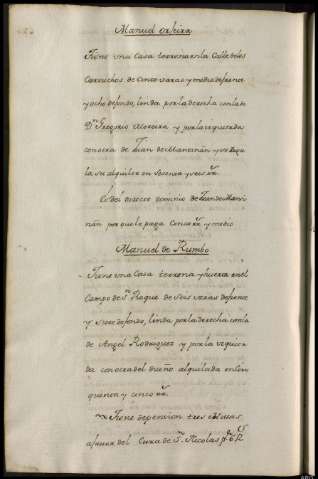 Manuel
Tiene una Casa terrena en la Calle de los
de Cinco varas y media de frente
y ocho de fondo, linda por la derecha con la de
Dn. Gregorio Moreira y por la izquierda
con otra de Juan de Mancinán y
la su alquiler en sesenta y seis rr.
Es del directo dominio de Juan de Manci
nán por que le paga Cinco rr. y medio
Manuel de Rumbo
Tiene una Casa terrena y huerta en el
Campo de Sn. Roque de Seis varas de frente
y Siete de fondo, linda por la derecha con la
de Angel Rodriguez y por la izquier
da con otra del dueño alquilada en Cin
quenta y cinco rr.
Tiene de pension tres Misas
a favor del Cura de Sn. Nicolas